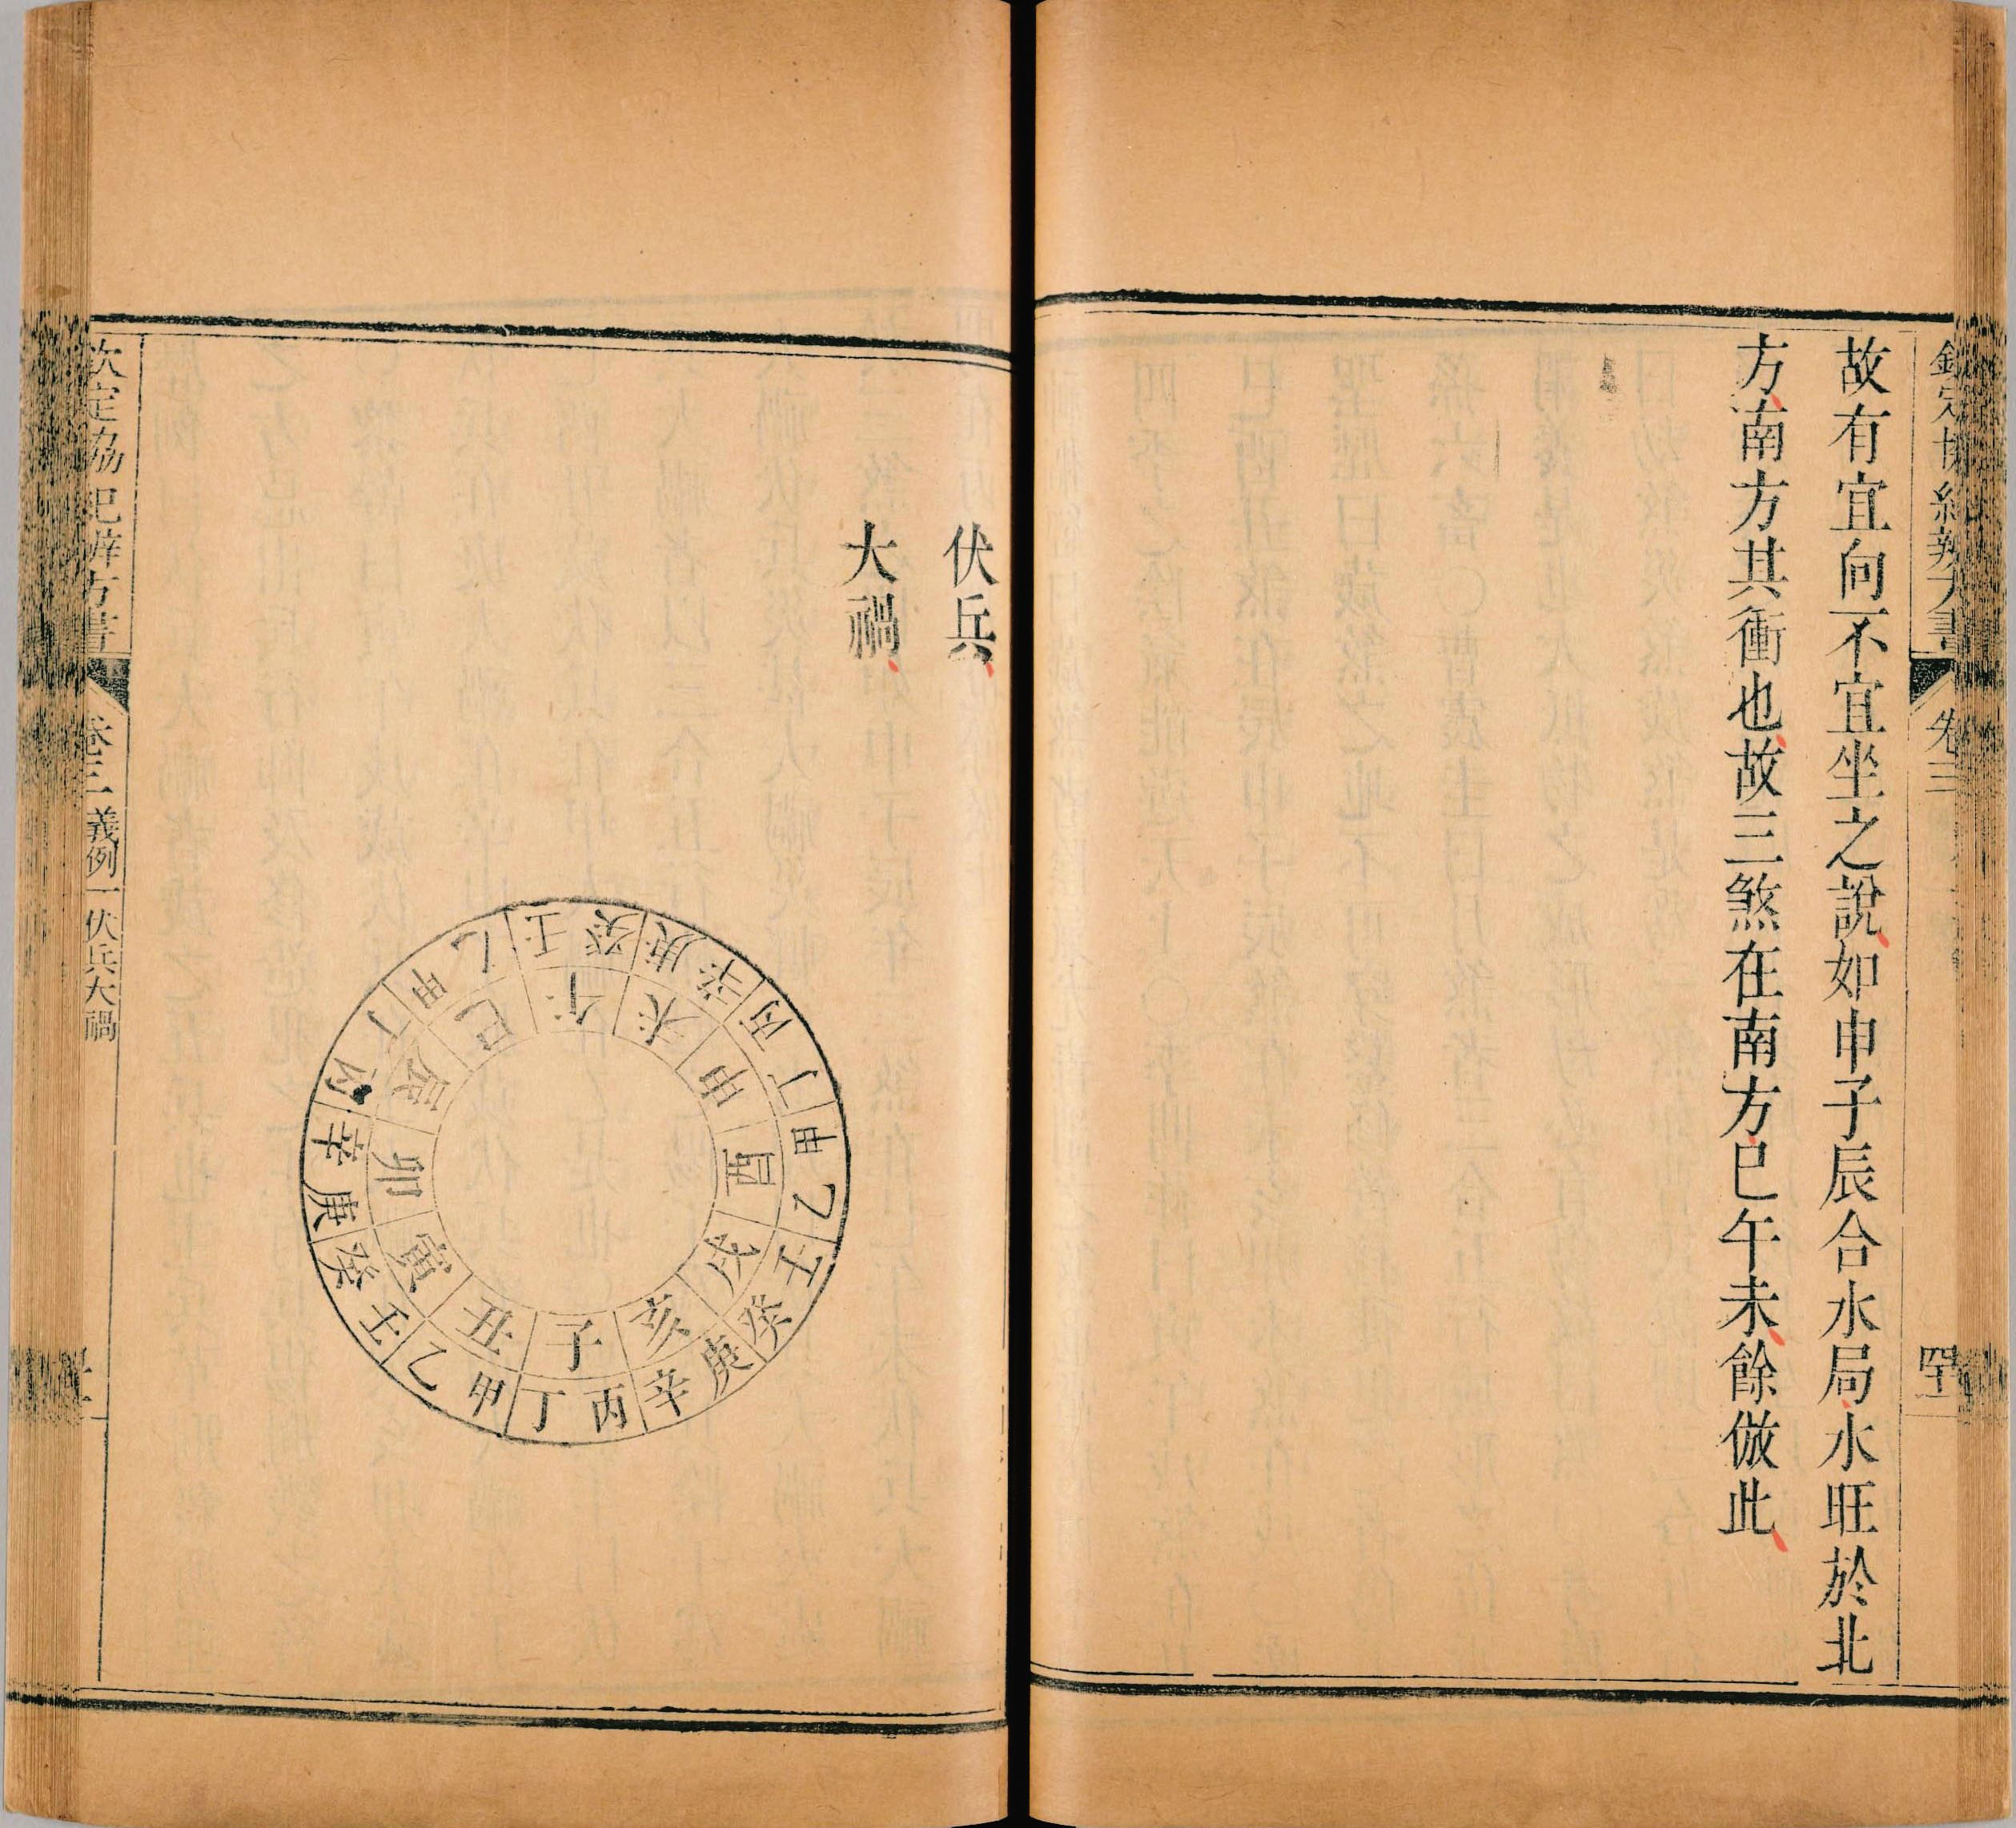 欽定協紀辨方書
卷三
四十
故有宜向不宜坐之說如申子辰合水局水旺於北
方南方其衝也故三煞在南方巳午未餘倣此
伏兵
大禍
午未申酉戌亥子丑寅卯辰巳
壬癸庚辛丙丁甲乙壬癸庚辛丙丁甲乙壬癸庚辛丙丁甲乙
欽定協紀辨方書
卷三 義例一 伏兵大禍